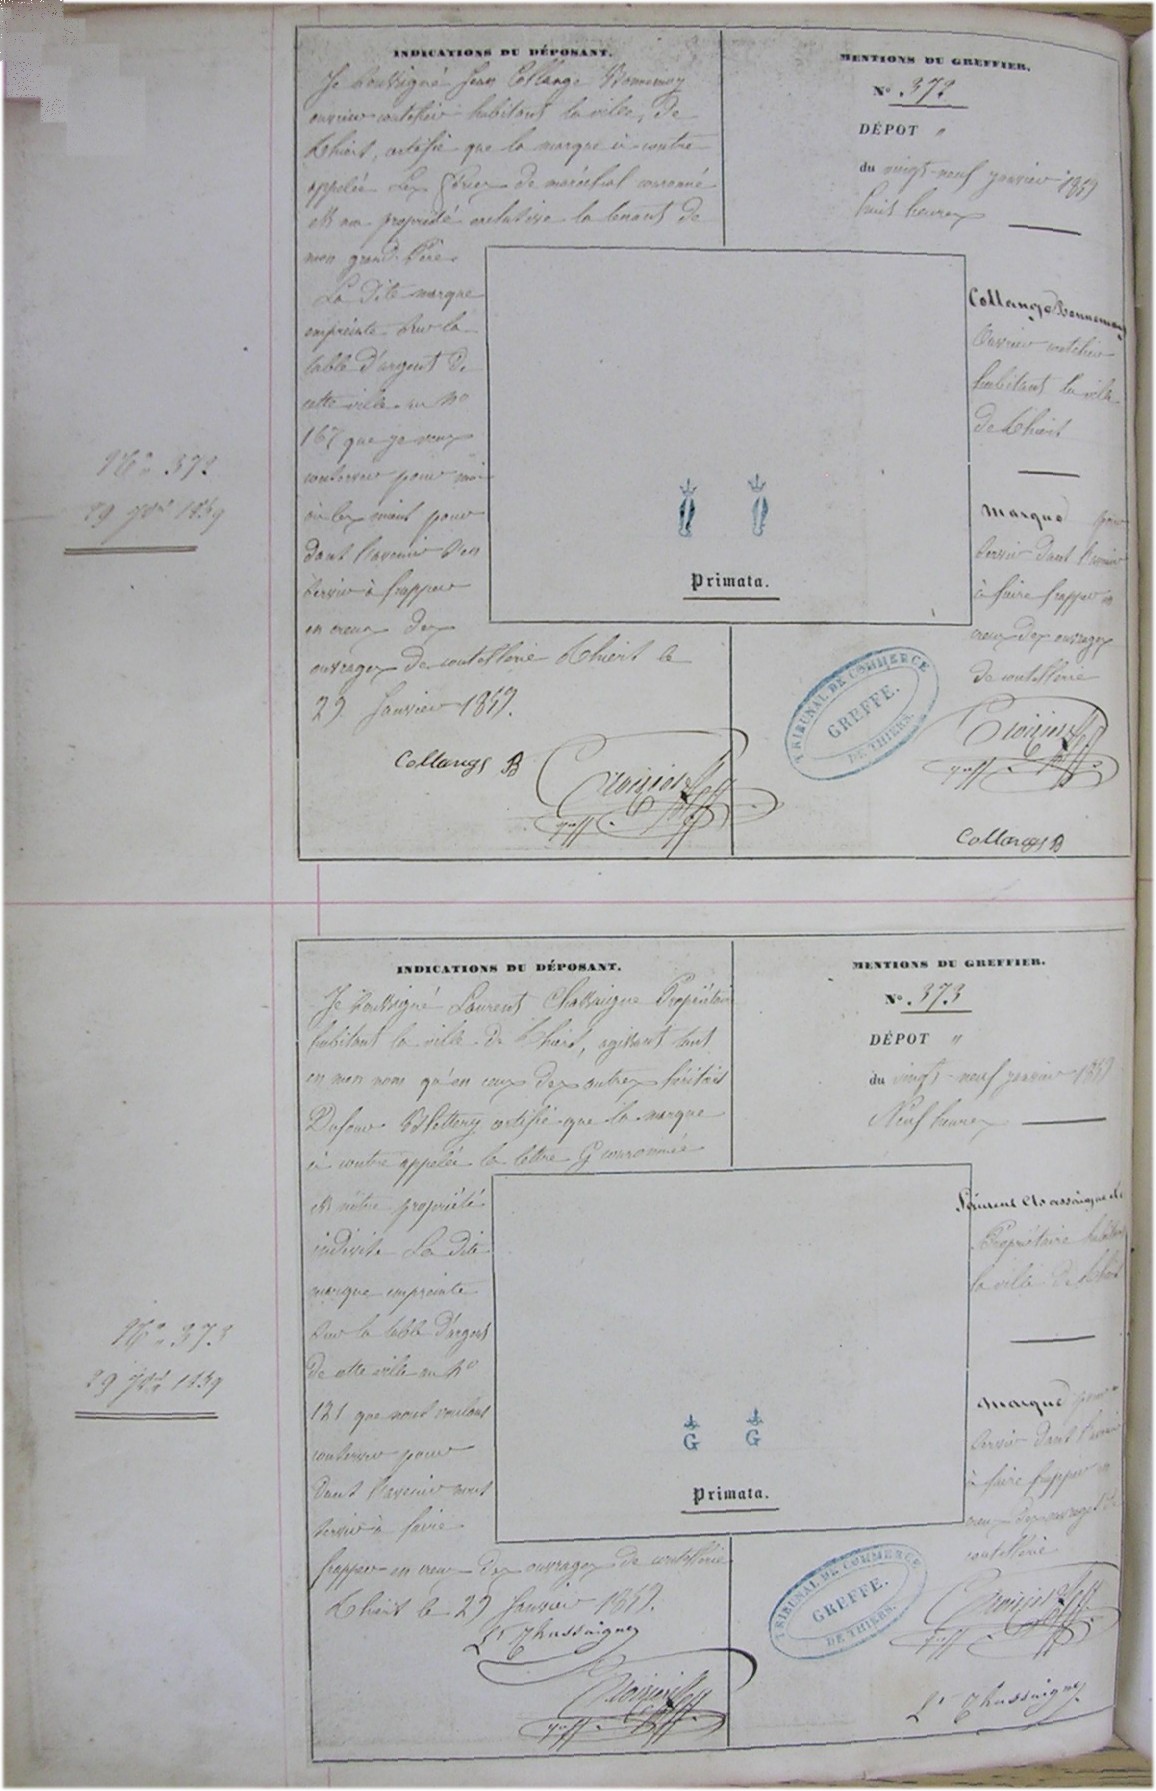 N° 372
29 Jer 1859
INDICATIONS DU DÉPOSANT.
Je soussigné Jean Collange Bonnemoy
ouvrier coutelier habitant la ville de
Thiers, certifie que la marque ci contre
appelée Les de maréchal couronné
est ma propriété exclusive la tenant de
mon grand Père
La dite marque
empreinte sur la
table d'argent de
cette ville au No
167 que je veux
conserver pour moi
ou les miens pour
dans l'avenir s'en
servir à frapper
en creux des
ouvrages de coutellerie Thiers le
29 Janvier 1859.
Collange B
MENTIONS DU GREFFIER.
N° 372
DÉPOT "
du vingt-neuf janvier 1859
huit heures
Collange Bonnemoy
Ouvrier coutelier
habitant la ville
de Thiers
Marque pour
servir dans l'avenir
à faire frapper en
creux des ouvrages
de coutellerie
Primata.
TRIBUNAL DE COMMERCE
GREFFE.
DE THIERS.
Collange B
N° 373
29 Jer 1859
INDICATIONS DU DÉPOSANT.
Je soussigné Laurent Chassaigne Propriétaire
habitant la ville de Thiers, agissant tant
en mon nom qu'en ceux des autres héritiers
Dufour certifie que la marque
ci contre appelée la lettre G couronnée
est nôtre propriété
indivise La dite
marque empreinte
sur la table d'argent
de cette ville au No
121 que nous voulons
conserver pour
dans l'avenir nous
servir à faire
frapper en creux des ouvrages de coutellerie
Thiers le 29 Janvier 1859.
Lt Chassaigne
MENTIONS DU GREFFIER.
N° 373
DÉPOT "
du vingt-neuf janvier 1859
Neuf heures
Laurent Chassaigne
Propriétaire habitant
la ville de Thiers
Marque pour
servir dans l'avenir
à faire frapper en
creux des ouvrages de
coutellerie
G G
Primata.
TRIBUNAL DE COMMERCE
GREFFE.
DE THIERS.
Lt Chassaigne